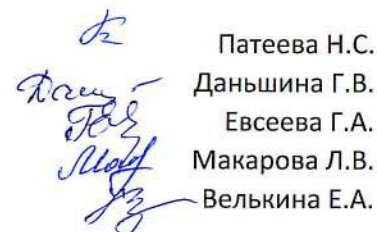 Патеева Н.С.
Даньшина Г.В.
Евсеева Г.А.
Макарова Л.В.
Велькина Е.А.